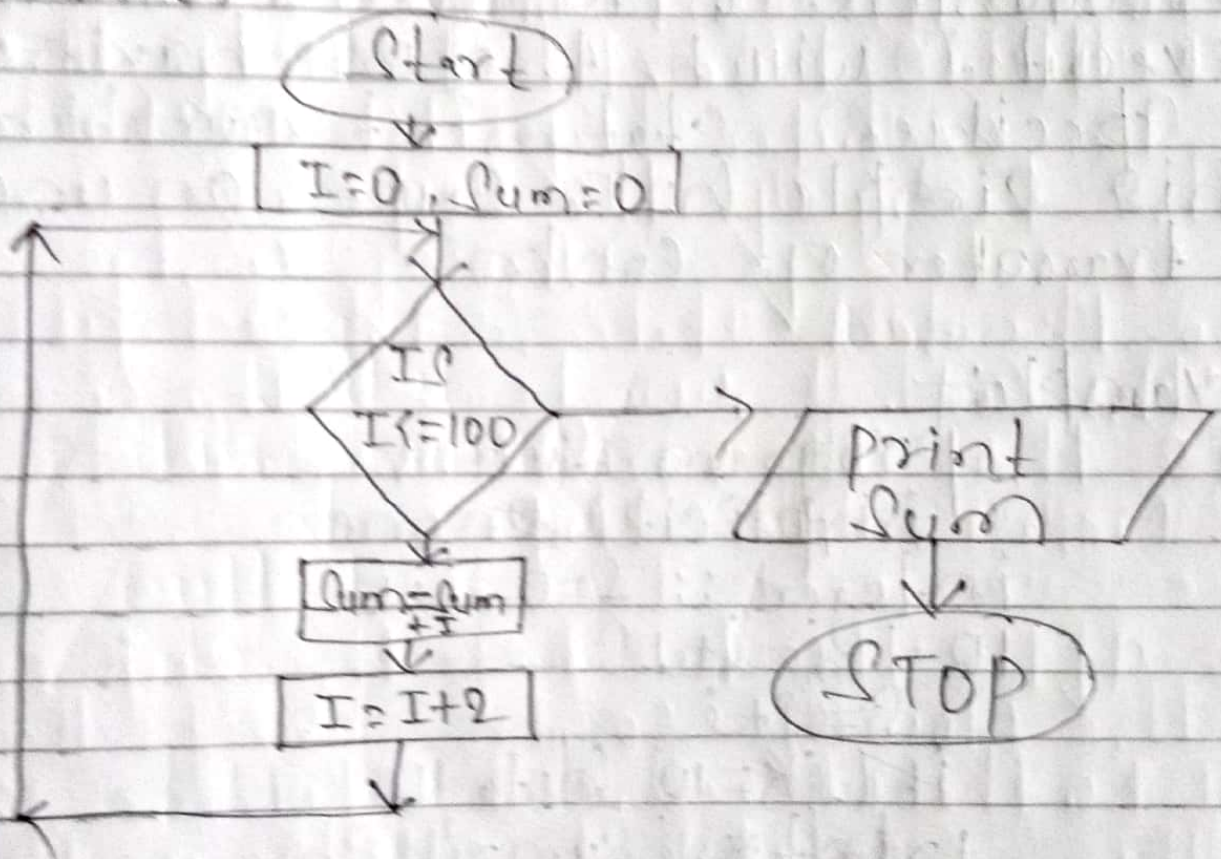 Start
I=0, Sum=0
IS
I<=100
print
Sum
Sum=Sum
+I
I=I+2
STOP